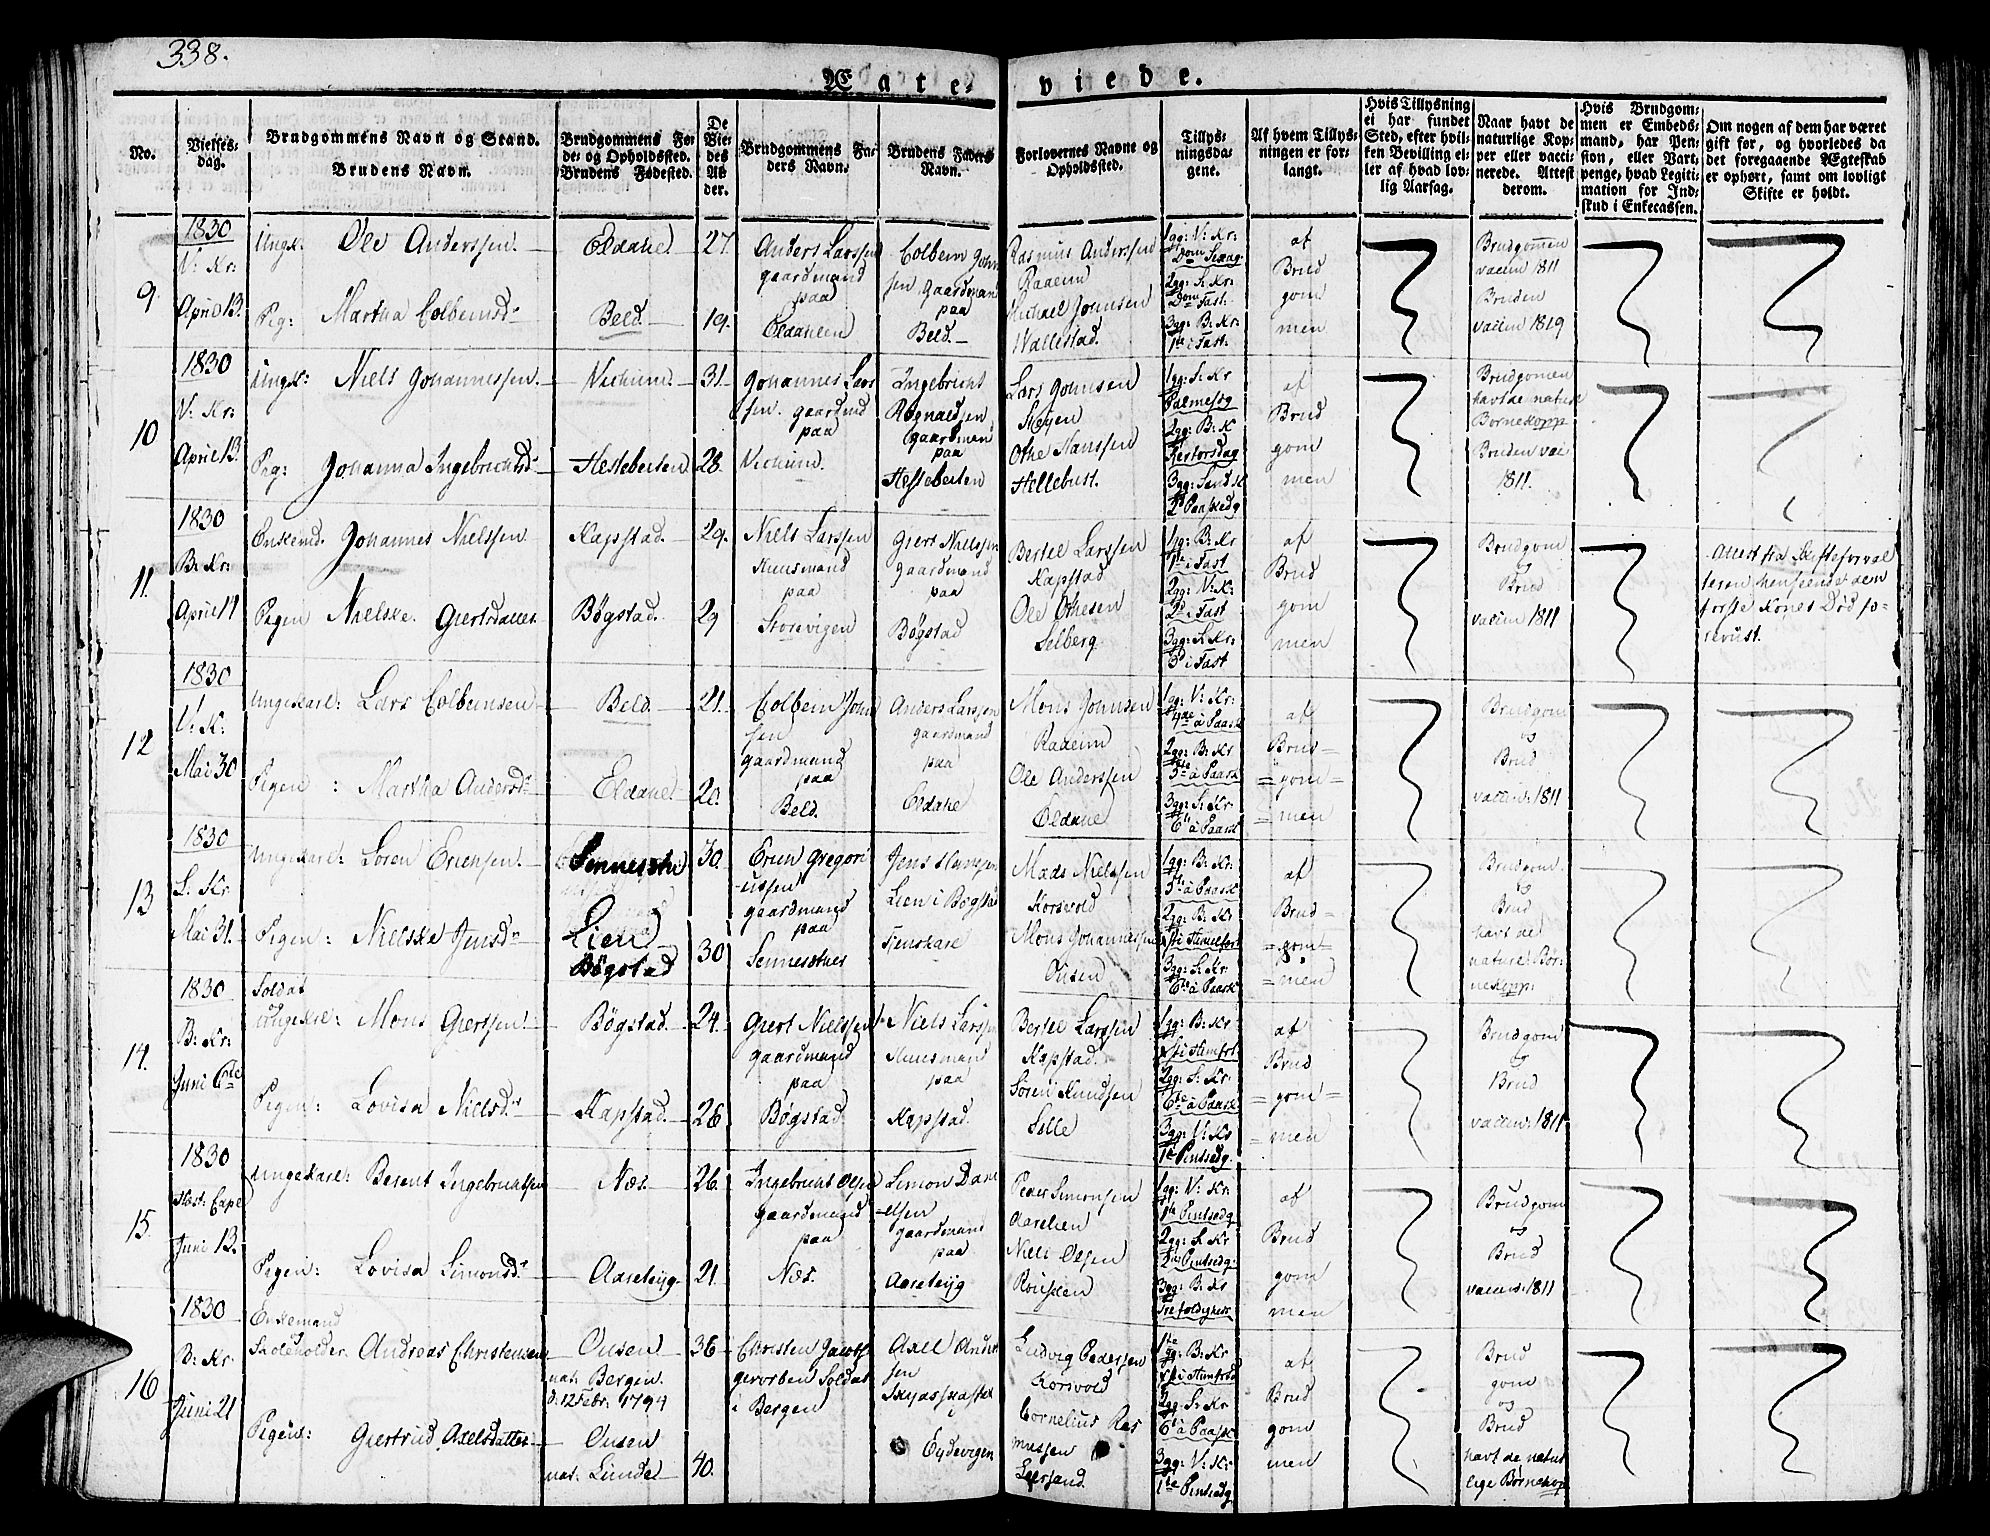 338.
Æ g t e v i e d e.
No.
Vielses-
dag.
Brudgommens Navn og Stand.
Brudens Navn.
Brudgommens Fø-
de- og Opholdssted.
Brudens Fødested.
De
Vie-
des
Al-
der.
Brudgommens Fa-
ders Navn.
Brudens Faders
Navn.
Forlovernes Navne og
Opholdssted.
Tillys-
ningsda-
gene.
Af hvem Tillys-
ningen er for-
langt.
Hvis Tillysning
ei har fundet
Sted, efter hvil-
ken Bevilling el-
ler af hvad lov-
lig Aarsag.
Naar havt de
naturlige Kop-
per eller vacci-
nerede. Attest
derom.
Hvis Brudgom-
men er Embeds-
mand, har Pen-
sion, eller Vart-
penge, hvad Legiti-
mation for Ind-
skud i Enkecassen.
Om nogen af dem har været
gift før, og hvorledes da
det foregaaende Ægteskab
er ophørt, samt om lovligt
Skifte er holdt.
9.
1830
V: Kr:
April 13.
Ungk: Ole Anderssen.
Pig: Martha Colbeinsd
Eldahl
Beld.
27.
19.
Anders Larssen
gaardmand
paa
Eldahlen
Colbein John
sen gaardman
paa
Beld.
Rasmus Anderssen
Raaeim
Michael Johnsen
Wallestad.
1gg: V: Kr:
2gg: S: Kr:
3gg: B: Kr:
1te i Fast.
af
Brud
gom
men
Brudgommen
vaccin 1811
Bruden
vaccin 1819
10
1830
V: Kr:
April 13.
Ungk: Niels Johannessen.
Pig: Johanna Ingebrichtsd
Hestebeiten
31.
28.
Johannes Lars
sen. gaardmd
paa
Ingebricht
Rognaldsen
gaardman
paa
Hestebeiten
Lars Johnsen
Othe Hanssen
Hellebust.
1gg: S: Kr
Palmesøg
2gg: B: K
3gg:
af
Brud
gom
men
Brudgomen
havt de naturl
Børnekopp
Bruden vac
1811.
11.
1830
B: Kr:
April 17
Enkemd. Johannes Nielssen
Pigen Nielske Giertsdatter
Kapstad.
Bøgstad.
29.
29
Niels Larssen
Huusmand
paa
Storevigen
Giert Nielssen
gaardmand
paa
Bøgstad
Bertel Larssen
Kapstad
Ole Othesen
Selberg
1gg: B: Kr
1te i Fast
2gg: V: K:
2d i Fast
3gg: S: Kr:
3d i Fast
af
Brud
gom
men
Brudgom
og
Brud
vaccin 1811
Attest fra Skifteforval
teren henseende den
første Kones Død pr-
oevist.
12
1830
V: K:
Mai 30
Ungekarl: Lars Colbeinsen
Pigen : Martha Andersd
Beld.
Eldahl
21.
20.
Colbein John
sen
gaardmand
paa
Beld.
Anders Larssen
gaardmand
paa
Eldahl
Mons Johnsen
Raaeim
Ole Anderssen
Eldahl
1gg: V: Kr:
2gg: B: Kr
3gg: S: Kr.
af
Brud=
=gom=
=men
Brudgom
og
Brud
vaccin: 1811
13
1830
S: Kr
Mai 31.
Ungekarl: Søren Erichsen
Pigen: Nielske Jensd
Lien
Bøgstad
30.
30
Erich Gregori
ussen
gaardmand
paa
Jens Hanssen
Lien i Bøgstad
Mads Nielssen
Korsvold
Mons Johannessen
Ousen
1gg: B: Kr:
2gg: B: Kr
3gg: S: Kr:
af
Brud=
=gom=
=men
Brudgom
og
Brud
havt de
naturl: Bør-
nekopp:
14.
1830
B: Kr:
Juni 6te
Soldat
Ungekrl: Mons Giertsen
Pigen: Lovisa Nielsd
Bøgstad.
Kapstad.
24.
26
Giert Nielssen
gaardmand
paa
Bøgstad
Niels Larssen
Huusmand
paa
Kapstad.
Bertel Larssen
Kapstad.
Søren Knudssen
Solle
1gg: B: Kr
2gg: S: Kr:
3gg: V: Kr
1te Pintsedg.
af
Brud
=gom=
=men
Brudgom
og
Brud
vaccin: 1811
15.
1830
Juni 13.
Ungekarl: Berent Ingebrichtsen
Pigen: Lovisa Simonsd
Næs.
Aarebrug
26.
21.
Ingebricht Olsen
gaardmand
paa
Næs.
Simon Dani
elsen
gaardmand
paa
Peder Simonsen
Niels Olssen
1gg: V: Kr.
1te Pintsedg.
2gg: S: Kr
2den Pintsedg.
3gg: B: Kr
af
Brud
gom
men
Brudgom
og
Brud
vaccin: 1811
16
1830
V: Kr.
Juni 21
Enkemand
og
Skoleholder. Andreas Christensen
Pigen: Giertrud Axelsdatter
Ousen
nat. Bergen.
d. 12 Febr. 1794
Ousen
nat. Sunde
36
40.
Christen Jacobs
gevorben Soldat
i Bergen
Axel Ander
sen
i
Eydevigen
Ludvig Pedersen
Korsvold
Cornelius Ras
mussen
Leersand.
1te
1gg: B: Kr
2gg: S: Kr
3gg: V: Kr:
1te Pintsedg
af
Brud
gom
men
Brud
gom
og
Brud
havt de natur
lige Børnekop